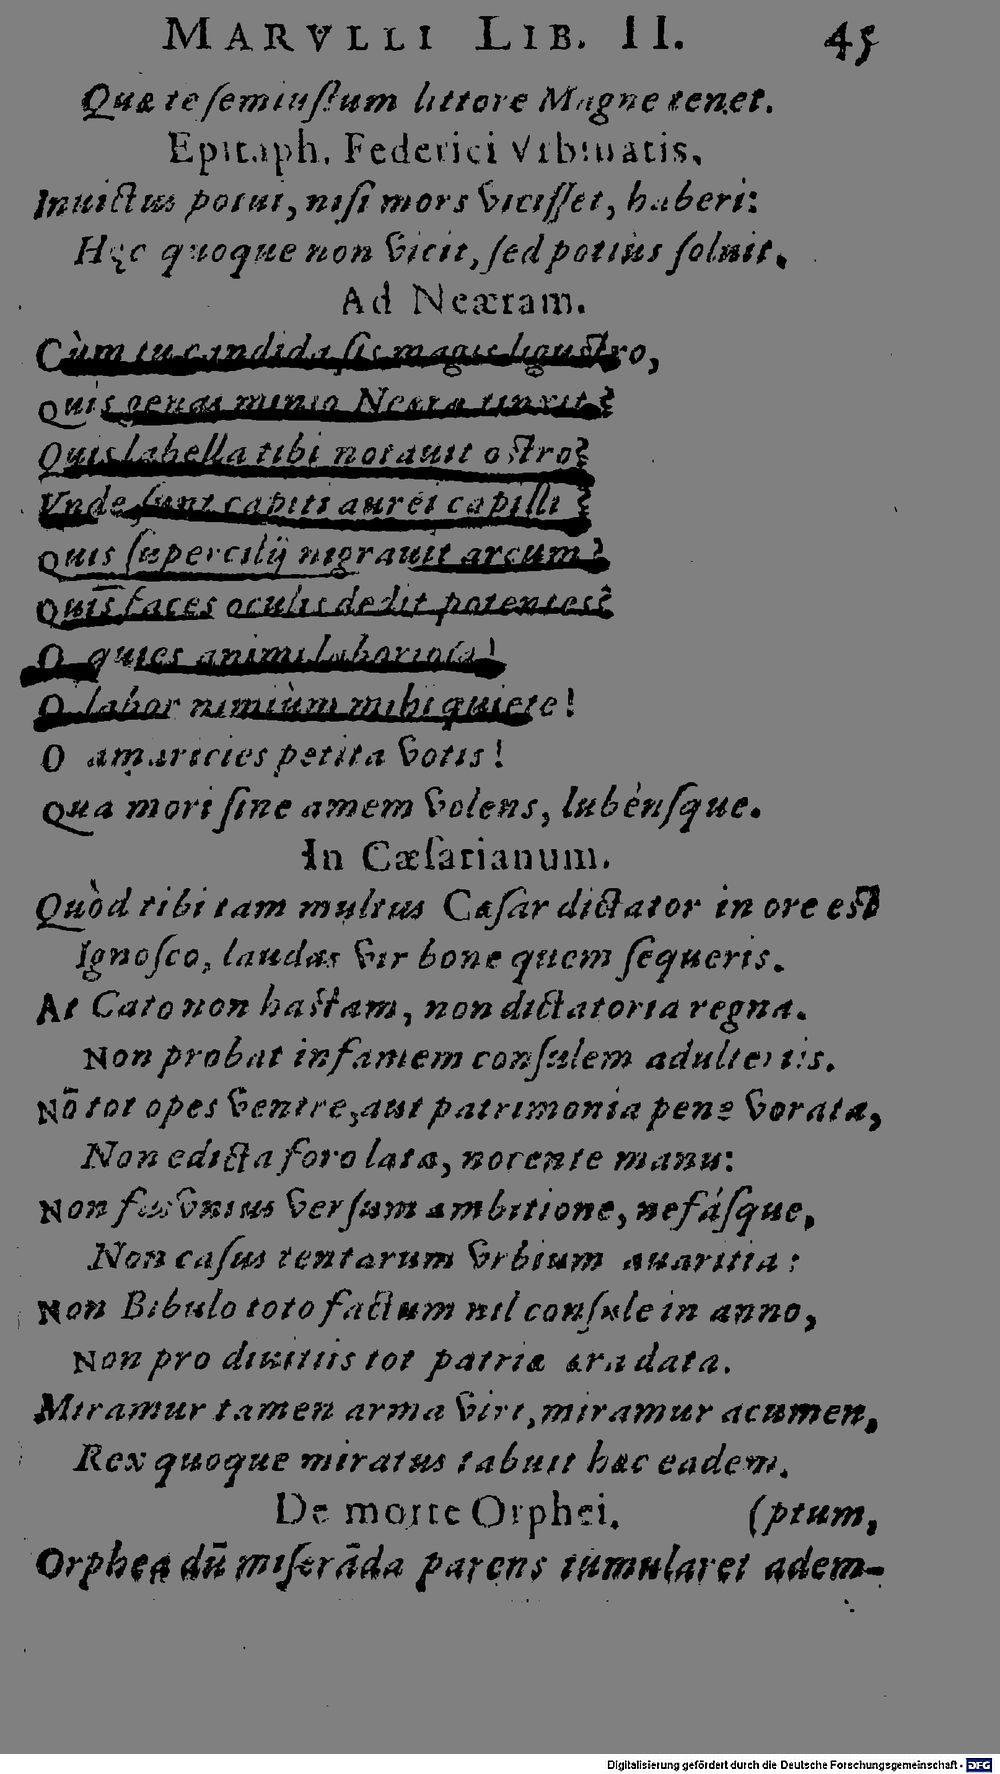 MARVLLI LIB. II. 45
Quæ te ſemiuſtum littore Magne tenet.
Epitaph. Federici Vrbinatis.
Inuictus potui, niſi mors viciſſet, haberi:
Hęc quoque non vicit, ſed potius ſoluit.
Ad Neæram.
Cùm tu candida ſis magis liguſtro,
Quis genas minio Neæra tinxit?
Quis labella tibi notauit oſtro?
Vnde ſunt capiti aurei capilli?
Quis ſupercilij nigrauit arcum?
Quis faces oculis dedit potentes?
O quies animi laborioſa!
O labor nimiùm mihi quiete!
O amarities petita votis!
Qua mori ſine amem volens, lubénſque.
In Cæſarianum.
Quòd tibi tam multus Cæſar dictator in ore est
Ignoſco, laudas vir bone quem ſequeris.
At Cato non haſtam, non dictatoria regna.
Non probat infamem conſulem adulteriis.
Nō tot opes ventre, aut patrimonia penę vorata,
Non edicta foro lata, nocente manu:
Non fas vnius verſum ambitione, nefáſque,
Non caſus tentarum vrbium auaritia:
Non Bibulo toto factum nil conſule in anno,
Non pro diuitiis tot patriæ ara data.
Miramur tamen arma viri, miramur acumen,
Rex quoque miratus tabuit hæc eadem.
De morte Orphei. (ptum,
Orphea dū miſerāda parens tumularet adem-
Digitalisierung gefördert durch die Deutsche Forschungsgemeinschaft - DFG